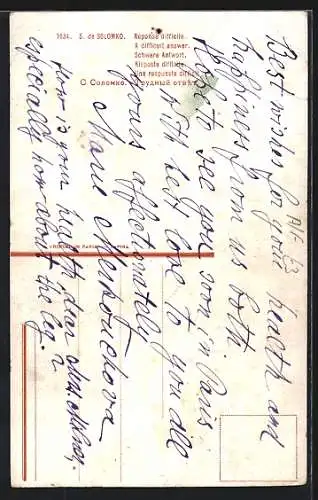 1634. S. de SOLOMKO.
Réponse difficile.
A difficult answer.
Schwere Antwort.
Risposta difficile.
Una respuesta difficil.
С. Соломко. Трудный отвѣт.
Best wishes for your health and
happiness from us both.
Hope to see you soon in Paris
With best love to you all
Yours affectionately
Marie
How is your health, dear Mrs.
especially how about the leg?
A/F 63